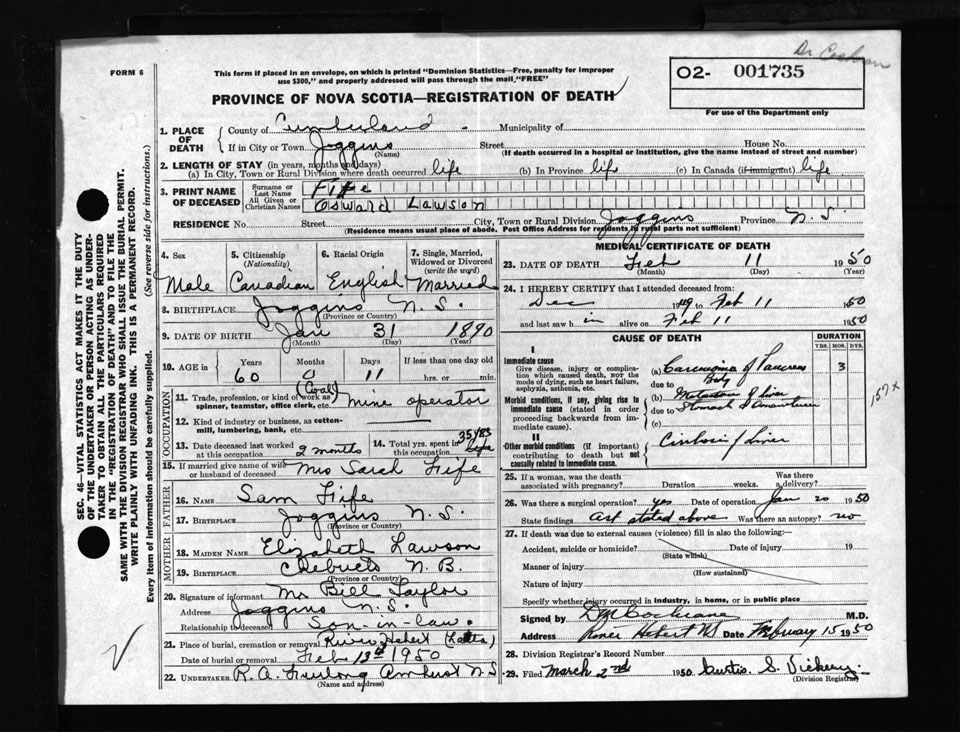 Dr Cochran
FORM 6
This form if placed in an envelope, on which is printed "Dominion Statistics—Free, penalty for improper
use $300," and properly addressed will pass through the mail "FREE"
O2- 001735
For use of the Department only
PROVINCE OF NOVA SCOTIA—REGISTRATION OF DEATH
1. PLACE OF DEATH { County of Cumberland Municipality of
If in City or Town Joggins Street House No.
(Name) (If death occurred in a hospital or institution, give the name instead of street and number)
2. LENGTH OF STAY (in years, months and days)
(a) In City, Town or Rural Division where death occurred life (b) In Province life (c) In Canada (if immigrant) life
3. PRINT NAME OF DECEASED { Surname or Last Name Fife
All Given or Christian Names Osward Lawson
RESIDENCE No. Street City, Town or Rural Division Joggins Province N.S.
(Residence means usual place of abode. Post Office Address for residents in rural parts not sufficient)
4. Sex 5. Citizenship (Nationality) 6. Racial Origin 7. Single, Married, Widowed or Divorced (write the word)
Male Canadian English Married
8. BIRTHPLACE Joggins N.S.
(Province or Country)
9. DATE OF BIRTH Jan 31 1890
(Month) (Day) (Year)
10. AGE in { Years Months Days If less than one day old
60 0 11 hrs. or min.
OCCUPATION
11. Trade, profession, or kind of work as spinner, teamster, office clerk, etc. (Coal) mine operator
12. Kind of industry or business, as cotton-mill, lumbering, bank, etc.
13. Date deceased last worked at this occupation 2 months 14. Total yrs. spent in this occupation 35 yrs life
15. If married give name of wife or husband of deceased Mrs Sarah Fife
FATHER
16. NAME Sam Fife
17. BIRTHPLACE Joggins N.S.
(Province or Country)
MOTHER
18. MAIDEN NAME Elizabeth Lawson
19. BIRTHPLACE N.B.
(Province or Country)
20. Signature of informant Mr Bill Taylor
Address Joggins N.S.
Relationship to deceased Son-in-law.
21. Place of burial, cremation or removal River Hebert
Date of burial or removal Feb 13th 1950
22. UNDERTAKER R. A. Furlong Amherst N.S
(Name and address)
MEDICAL CERTIFICATE OF DEATH
23. DATE OF DEATH Feb 11 1950
(Month) (Day) (Year)
24. I HEREBY CERTIFY that I attended deceased from:
Dec 1949 to Feb 11 1950
and last saw him alive on Feb 11 1950
CAUSE OF DEATH DURATION
YRS. MOS. DYS.
I
Immediate cause
Give disease, injury or complication which caused death, NOT the mode of dying, such as heart failure, asphyxia, asthenia, etc.
(a) Carcinoma of Pancreas 3
due to Body
Morbid conditions, if any, giving rise to immediate cause (stated in order proceeding backwards from immediate cause).
(b) Metastases of liver
due to Stomach &
(c)
157x
II
Other morbid conditions (if important) contributing to death but not causally related to immediate cause.
Cirrhosis of Liver
25. If a woman, was the death associated with pregnancy? Duration weeks. Was there a delivery?
26. Was there a surgical operation? yes Date of operation Jan 20 1950
State findings as stated above Was there an autopsy? no
27. If death was due to external causes (violence) fill in also the following:—
Accident, suicide or homicide? Date of injury 19
(State which)
Manner of injury
(How sustained)
Nature of injury
Specify whether injury occurred in industry, in home, or in public place
Signed by D M Cochrane M.D.
Address River Hebert NS Date February 15 1950
28. Division Registrar's Record Number
29. Filed March 2nd 1950 Curtis. S. Vickery.
(Division Registrar)
SEC. 46—VITAL STATISTICS ACT MAKES IT THE DUTY
OF THE UNDERTAKER OR PERSON ACTING AS UNDERTAKER
TO OBTAIN ALL THE PARTICULARS REQUIRED
IN THE "REGISTRATION OF DEATH" AND TO FILE THE
SAME WITH THE DIVISION REGISTRAR WHO SHALL ISSUE THE BURIAL PERMIT.
WRITE PLAINLY WITH UNFADING INK. THIS IS A PERMANENT RECORD.
Every item of information should be carefully supplied. (See reverse side for instructions.)